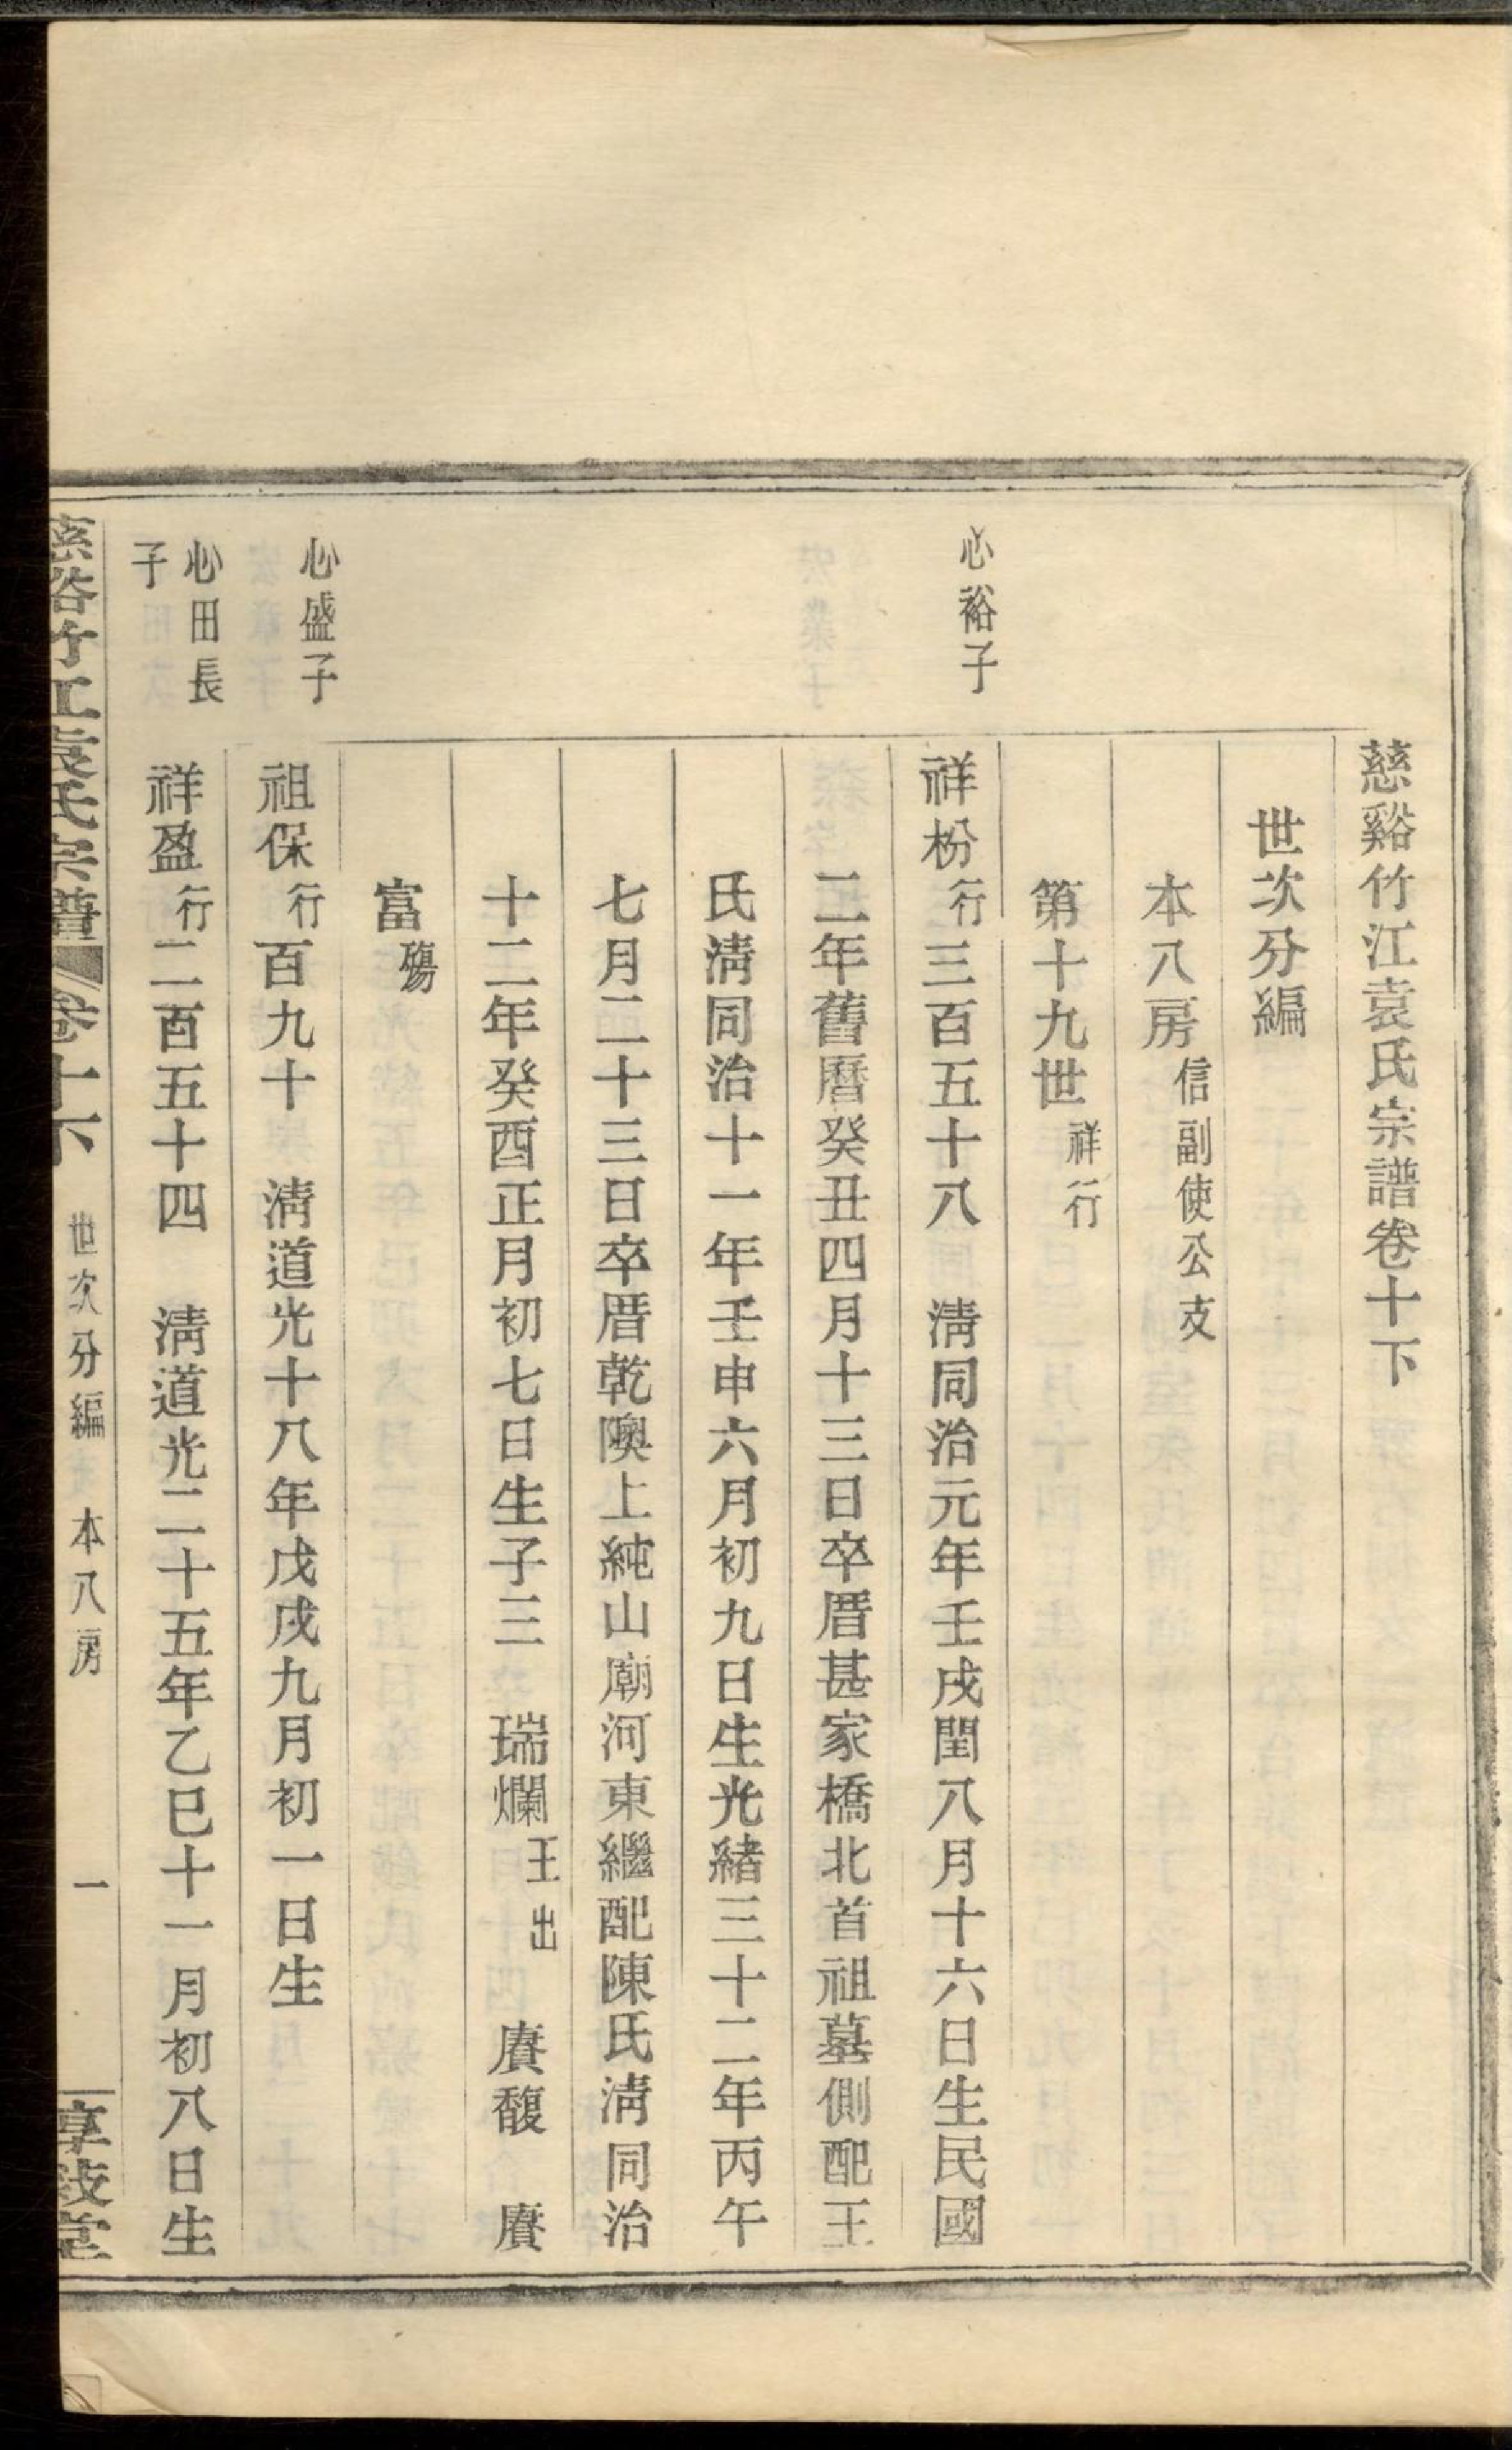 慈谿竹江袁氏宗譜卷十下
世次分編
本八房信副使公支
第十九世祥行
心裕子
祥枌行三百五十八 淸同治元年壬戌閏八月十六日生民國
二年舊曆癸丑四月十三日卒厝甚家橋北首祖墓側配王
氏淸同治十一年壬申六月初九日生光緒三十二年丙午
七月二十三日卒厝乾隩上純山廟河東繼配陳氏淸同治
十二年癸酉正月初七日生子三 瑞爛王出 賡馥 賡
富殤
心盛子
祖保行百九十 淸道光十八年戊戌九月初一日生
心田長
子
祥盈行二百五十四 淸道光二十五年乙巳十一月初八日生
慈谿竹江袁氏宗譜 卷十下 世次分編 本八房 一 享敍堂